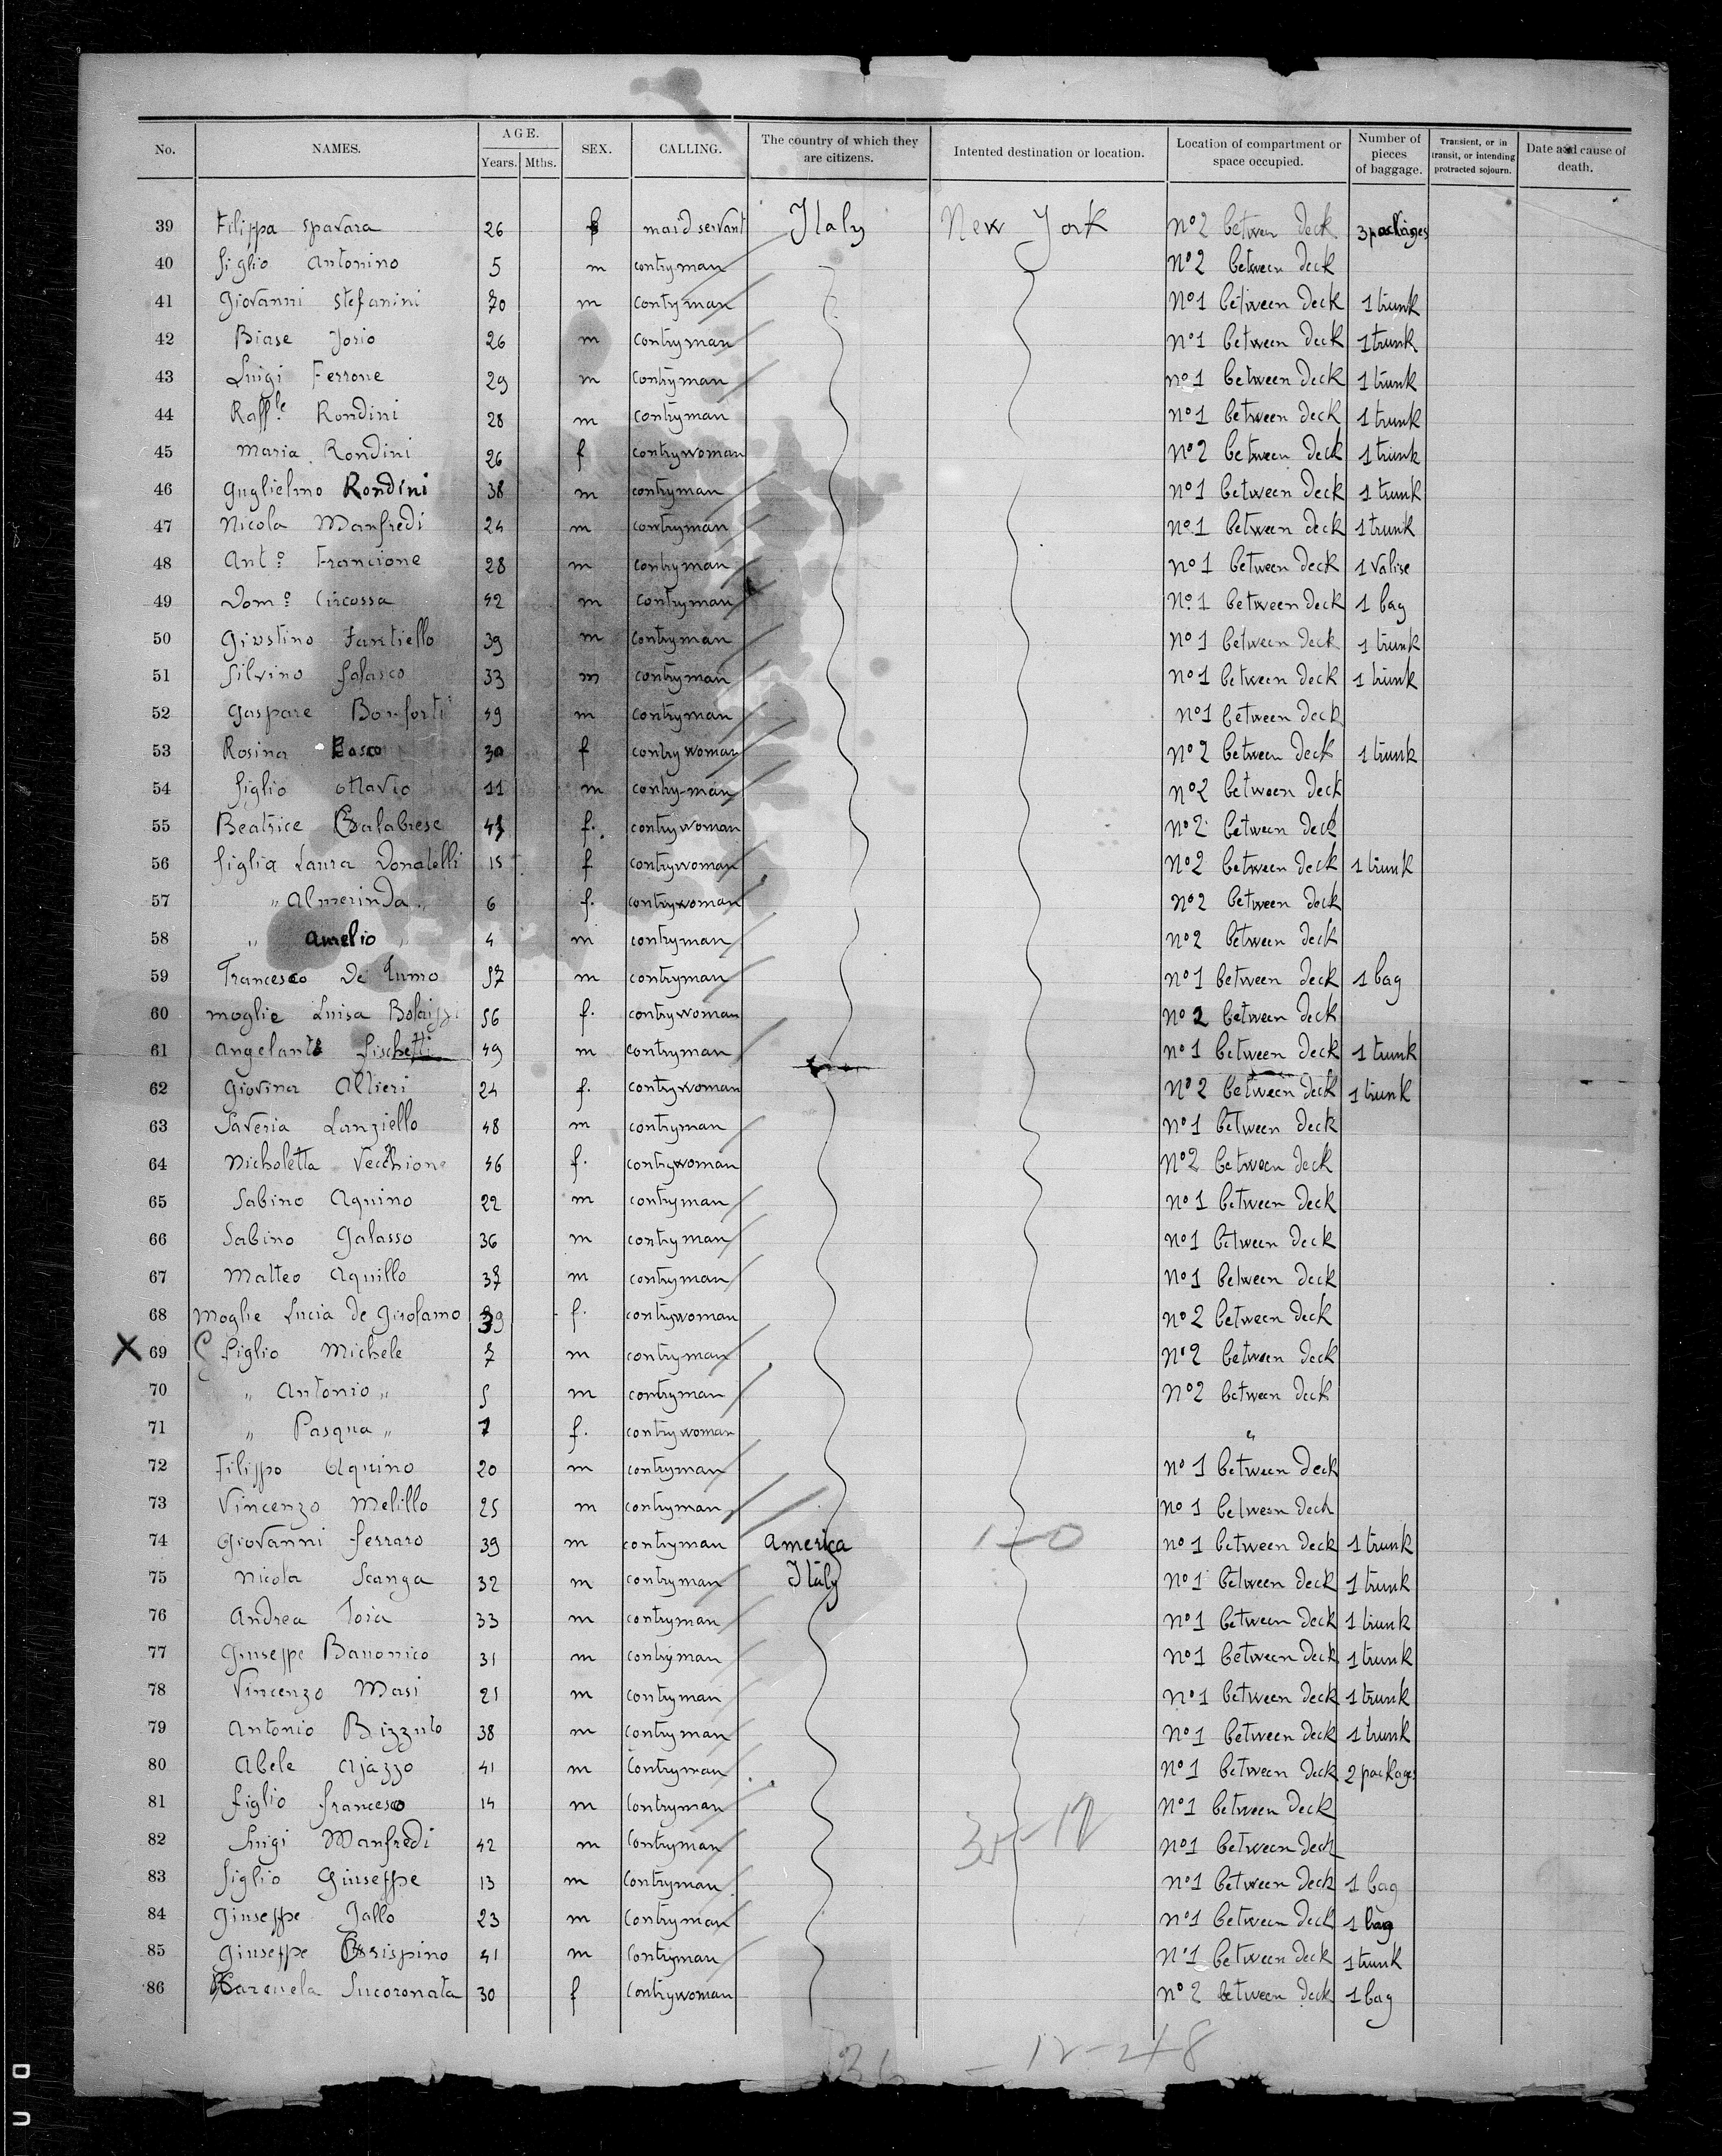 No. NAMES. AGE. Years. Mths. SEX. CALLING. The country of which they are citizens. Intented destination or location. Location of compartment or space occupied. Number of pieces of baggage. Transient, or in transit, or intending protracted sojourn. Date and cause of death.
39 Filippa Spavara 26 f maid servant Italy New York Nº2 between deck 3 packages
40 figlio Antonino 5 m contryman Nº2 between deck
41 Giovanni Stefanini 70 m contryman Nº1 between deck 1 trunk
42 Biase Josio 26 m contryman Nº1 between deck 1 trunk
43 Luigi Ferrone 29 m contryman nº1 between deck 1 trunk
44 Raff.le Rondini 28 m contryman nº1 between deck 1 trunk
45 Maria Rondini 26 f contrywoman Nº2 between deck 1 trunk
46 Guglielmo Rondini 38 m contryman Nº1 between deck 1 trunk
47 Nicola Manfredi 24 m contryman Nº1 between deck 1 trunk
48 Antº Francione 28 m contryman nº1 between deck 1 valise
49 Domº Circossa 42 m contryman Nº1 between deck 1 bag
50 Giustino Fantiello 39 m contryman Nº1 between deck 1 trunk
51 Silvino Galasco 33 m contryman Nº1 between deck 1 trunk
52 Gaspare Bonforti 49 m contryman Nº1 between deck
53 Rosina Basco 30 f contrywoman Nº2 between deck 1 trunk
54 figlio ottavio 11 m contry-man Nº2 between deck
55 Beatrice Calabrese 43 f. contrywoman Nº2 between deck
56 figlia Laura Donatelli 15 f contrywoman Nº2 between deck 1 trunk
57 " Almerinda " 6 f. contrywoman Nº2 between deck
58 " Aurelio " 4 m contryman Nº2 between deck
59 Francesco De Tumo 57 m contryman Nº1 between deck 1 bag
60 moglie Luisa 56 f. contrywoman Nº2 between deck
61 Angelantº Fischetti 49 m contryman Nº1 between deck 1 trunk
62 Giovina Altieri 24 f. contrywoman Nº2 between deck 1 trunk
63 Saveria Lanziello 48 m contryman Nº1 between deck
64 Nicholetta Vecchione 46 f. contrywoman Nº2 between deck
65 Sabino Aquino 22 m contryman Nº1 between deck
66 Sabino Galasso 36 m contryman Nº1 between deck
67 Matteo Aquillo 37 m contryman Nº1 between deck
68 Moglie Lucia de Girolamo 39 f. contrywoman Nº2 between deck
X 69 figlio Michele 7 m contryman Nº2 between deck
70 " Antonio " 5 m contryman Nº2 between deck
71 " Pasqua " 7 f. contrywoman "
72 Filippo Aquino 20 m contryman Nº1 between deck
73 Vincenzo Melillo 25 m contryman Nº1 between deck
74 Giovanni Ferraro 39 m contryman America 1-0 nº1 between deck 1 trunk
75 Nicola Scanga 32 m contryman Italy Nº1 between deck 1 trunk
76 Andrea Ioia 33 m contryman Nº1 between deck 1 trunk
77 Giuseppe Banonico 31 m contryman Nº1 between deck 1 trunk
78 Vincenzo Masi 21 m contryman Nº1 between deck 1 trunk
79 Antonio Bizzuto 38 m contryman Nº1 between deck 1 trunk
80 Abele Ajazzo 41 m Contryman Nº1 between deck 2 packages
81 figlio francesco 14 m Contryman Nº1 between deck
82 Luigi Manfredi 42 m Contryman Nº1 between deck
83 figlio Giuseppe 13 m Contryman Nº1 between deck 1 bag
84 Giuseppe Gallo 23 m Contryman Nº1 between deck 1 bag
85 Giuseppe Crispino 41 m Contryman Nº1 between deck 1 trunk
86 Incoronata 30 f Contrywoman Nº2 between deck 1 bag